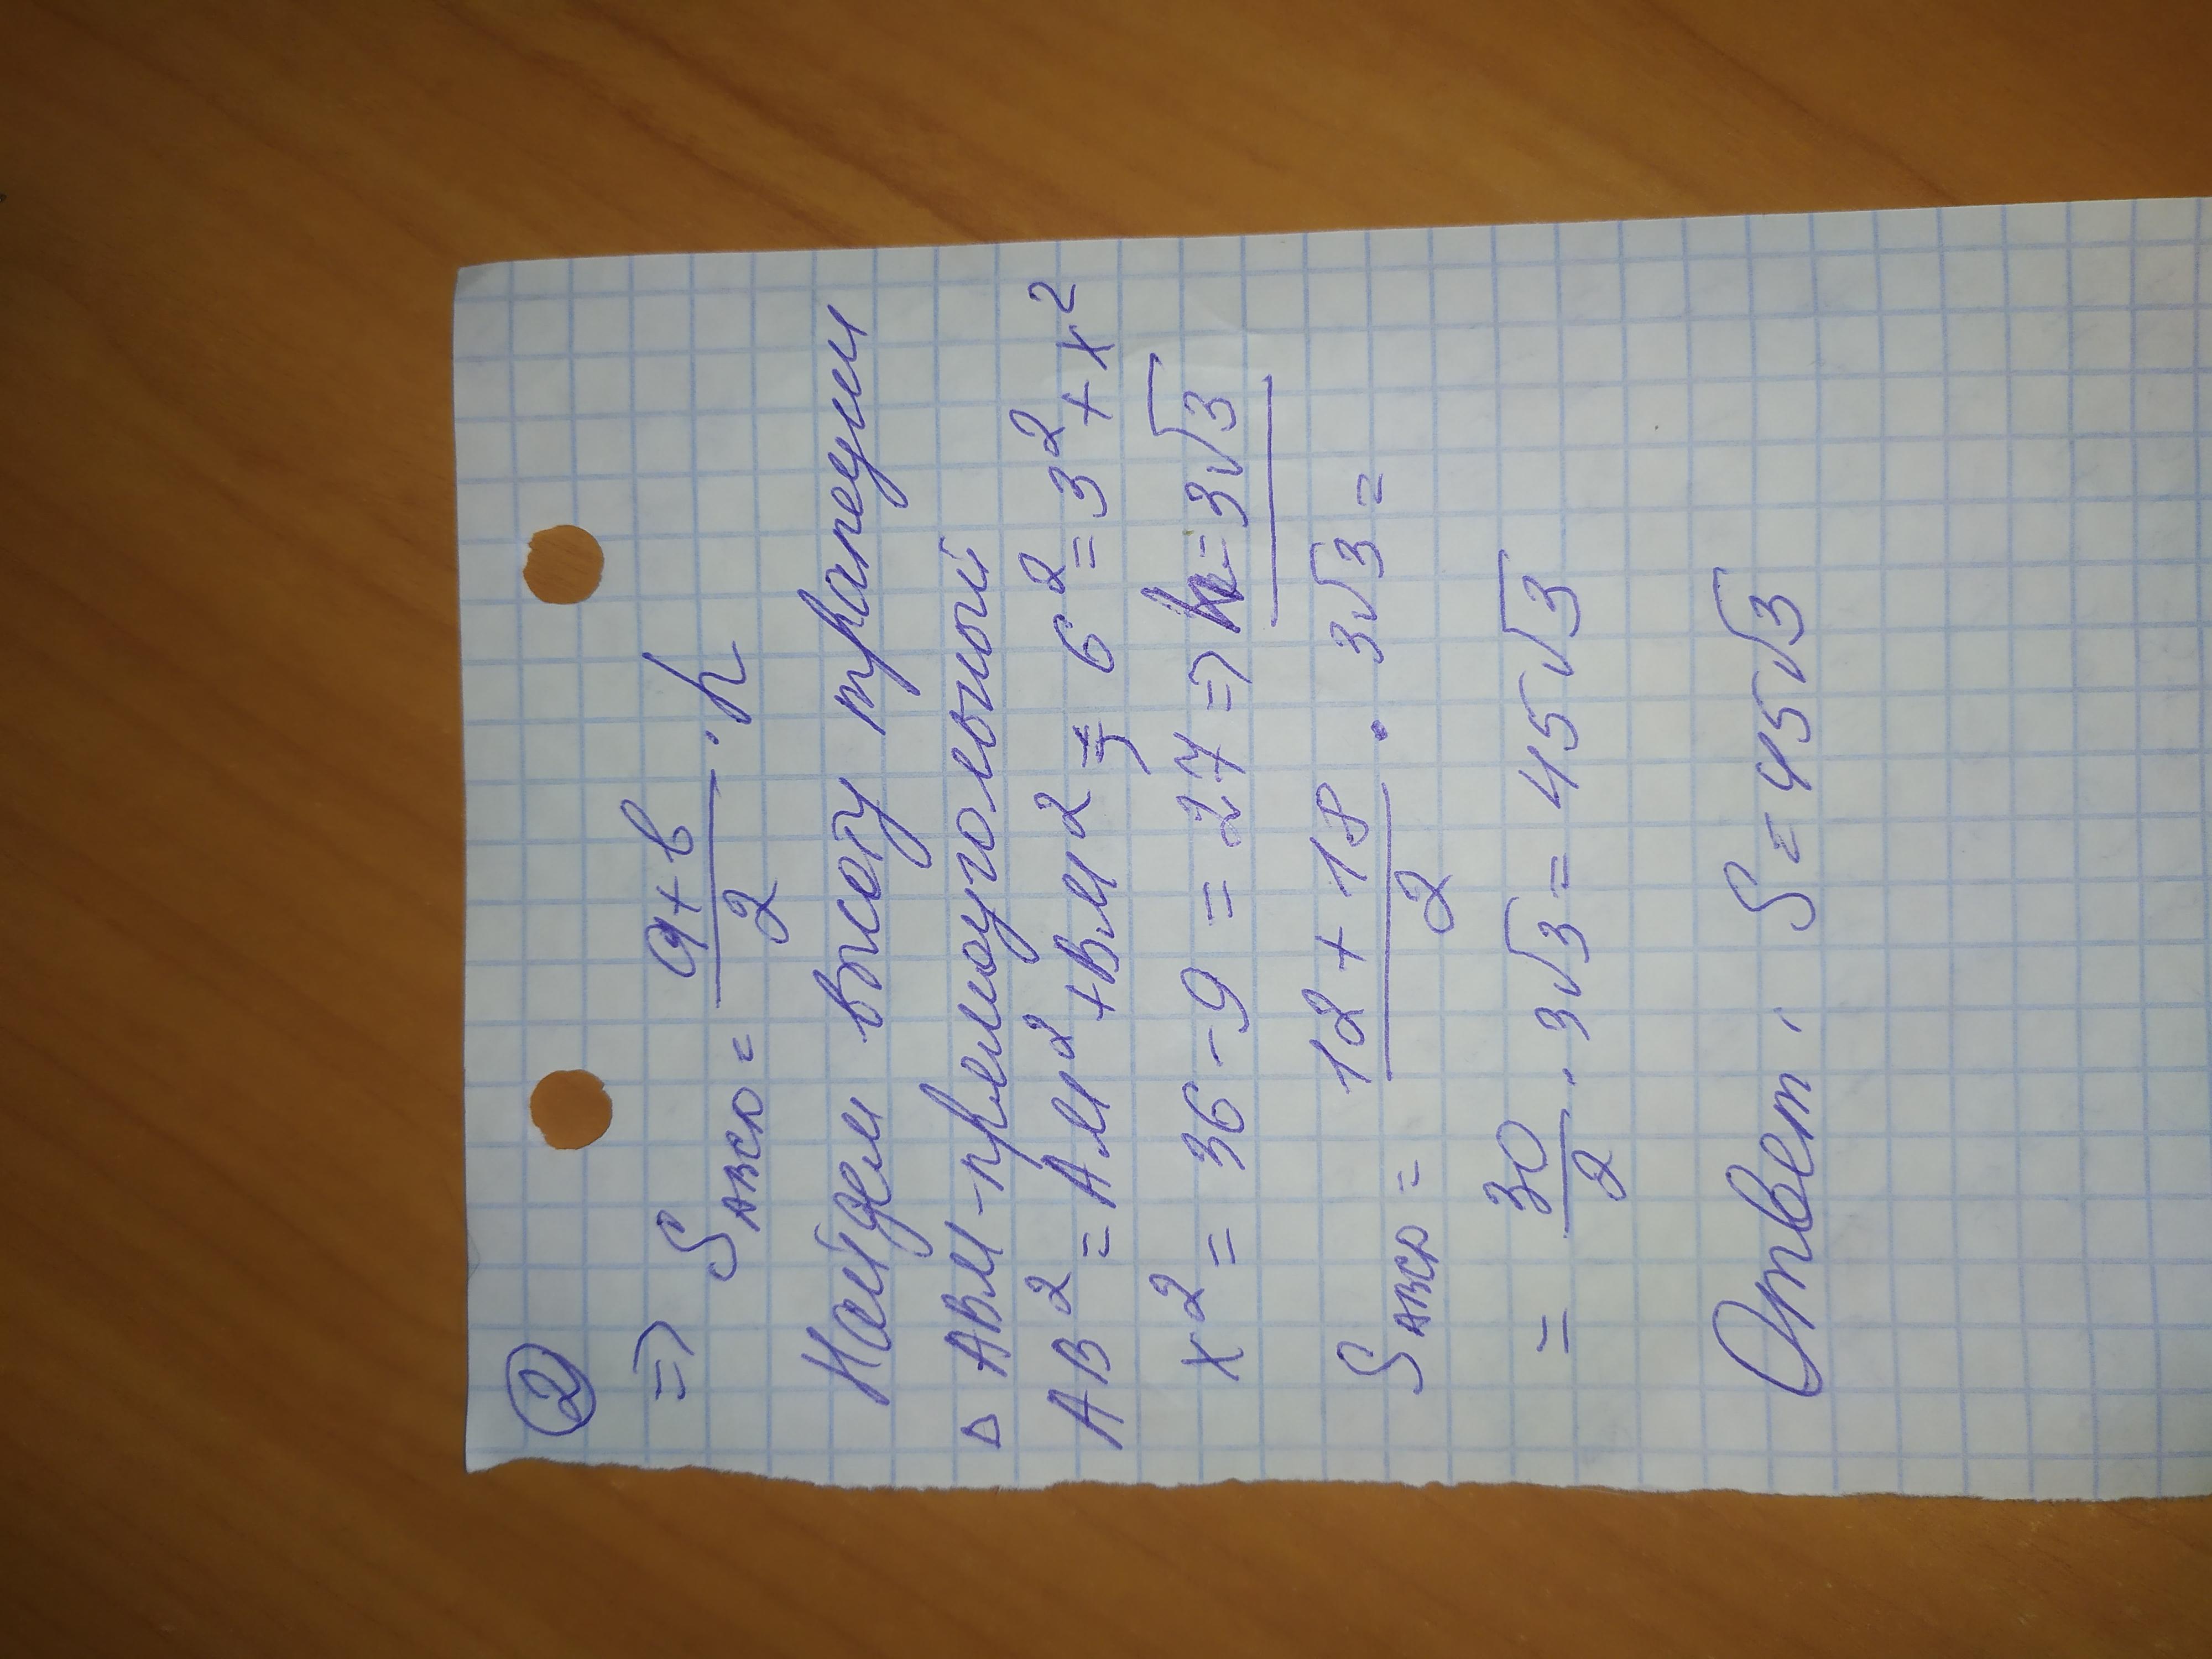 2
=> S ABCD = a+b/2 · h
Найдем высоту трапеции
△ ABM - прямоугольный
AB² = AM² + BM² => 6² = 3² + x²
x² = 36 - 9 = 27 => h = 3√3
S ABCD = 12 + 18/2 · 3√3 =
= 30/2 · 3√3 = 45√3
Ответ: S = 45√3